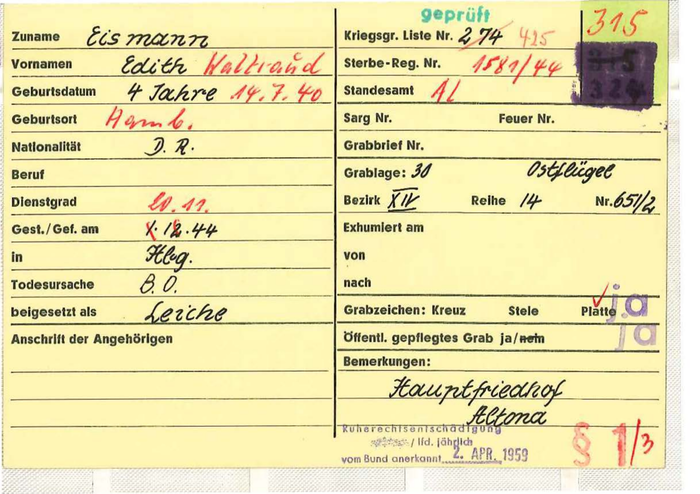 geprüft
315
Zuname Eismann
Kriegsgr. Liste Nr. 274 425
315
324
Vornamen Edith Waltraud
Sterbe-Reg. Nr. 1581/44
Geburtsdatum 4 Jahre 14.7.40
Standesamt Al
Geburtsort Hamb.
Sarg Nr. Feuer Nr.
Nationalität D. R.
Grabbrief Nr.
Beruf
Grablage: 30 Ostflügel
Dienstgrad
Bezirk XIV Reihe 14 Nr. 651/2
20.11.
Gest./Gef. am 1.12.44
Exhumiert am
in Hbg.
von
Todesursache B.O.
nach
beigesetzt als Leiche
Grabzeichen: Kreuz Stele Platte ja
Anschrift der Angehörigen
Öffentl. gepflegtes Grab ja/nein ja
Bemerkungen:
Hauptfriedhof
Altona
Ruherechtsentschädigung
/ lfd. jährlich
vom Bund anerkannt 2. APR. 1959
§ 1/3